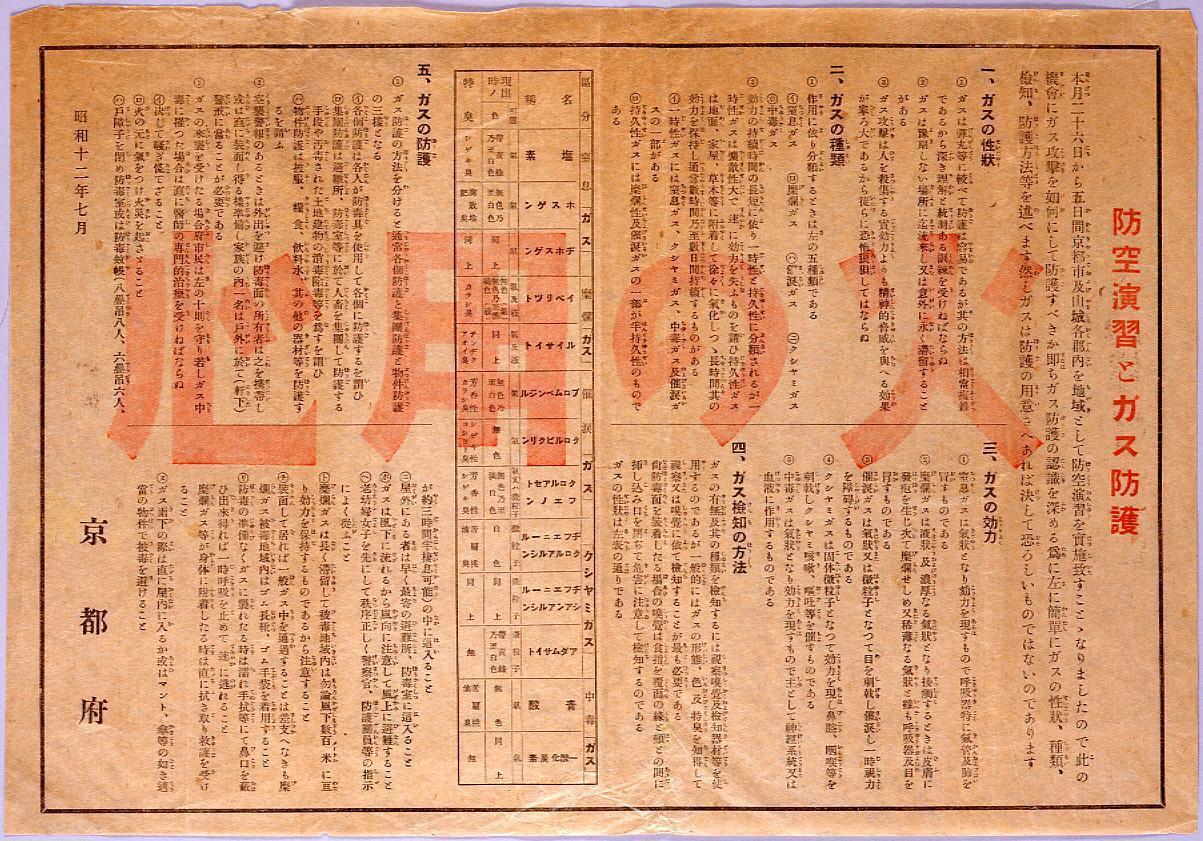 防空演習とガス防護
本月二十六日から五日間京都市及山城各郡內を地域として防空演習を實施致すことゝなりましたので此の
機會にガス攻擊を如何にして防護すべきか即ちガス防護の認識を深める爲に左に簡單にガスの性狀、種類、
檢知、防護方法等を述べます然しガスは防護の用意さへあれば決して恐ろしいものではないのであります
一、ガスの性狀
ガスは彈丸等に較べて防護は容易であるが其の方法は相當複雜
であるから深き理解と統制ある訓練を受けねばならぬ
がある
ガス攻擊は人を殺傷する實効力よりも精神的脅威を與へる効果
が擧ろ大であるから徒らに恐怖狼狽してはならぬ
二、ガスの種類
作用に依り分類するときは左の五種類である
(イ)窒息ガス (ロ)糜爛ガス (ハ)催淚ガス (ニ)クシヤミガス
(ホ)中毒ガス
効力の持續時間の長短に依り一時性と持久性に分類されるが一
時性ガスは瀰散性大で速に効力を失ふものを謂ひ持久性ガス
は地面、家屋、草木等に附着して徐々に氣化しつゝ長時間其の
効力を保持し通常數時間乃至數日間持續するものがある
(イ)一時性ガスには窒息ガス、クシヤミガス、中毒ガス及催淚ガ
スの一部がある
(ロ)持久性ガスには糜爛性ガス及催淚ガスの一部が半持久性のもので
ある
三、ガスの効力
窒息ガスは氣狀となり効力を現すもので呼吸器特に氣管及肺を
冒すものである
糜爛ガスは液狀及濃厚なる氣狀となり接觸するときは皮膚に
發疱を生じ火て糜爛せしめ又稀薄なる氣狀と雖も呼吸器及目を
冒すものである
催淚ガスは氣狀又は微粒子となつて目を刺戟し催淚し一時視力
を障碍するものである
クシヤミガスは固体微粒子となつて効力を現し鼻腔、咽喉等を
刺戟しクシヤミ咳嗽、嘔吐等を催すものである
中毒ガスは氣狀となり効力を現すもので主として神經系統又は
血液に作用するものである
四、ガス檢知の方法
ガスの有無及其の種類を檢知するには視察嗅覺及檢知器材等を使
用するのであるが一般的にはガスの形態、色及特臭を知得して
視察又は嗅覺に依て檢知することが最も必要である
尙防毒面を裝着したる場合の嗅覺は食指を覆面の緣と頰との間に
挿し込み口を閉ぢて危害に注意して檢知するのである
ガスの性狀は左表の通りである
區分 窒息ガス 糜爛ガス 催淚ガス クシヤミガス 中毒ガス
名稱 鹽素 ホスゲン ヂホスゲン イペリツト ルイサイト ブロムベンジル クロルピクリン クロルアセトフエノン ヂフエニールクロルアルシン ヂフエニールシアンアルシン アダムサイト 靑酸 一酸化炭素
現出時ノ
色
特臭
五、ガスの防護
ガス防護の方法を分けると通常各個防護と集團防護と物件防護
の三樣となる
(イ)各個防護は各人が防毒具を使用して各個に防護するを謂ひ
(ロ)集團防護は避難所、防毒室等に於て人畜を集團して防護する
手段や汚毒された土地建物の消毒除毒等を爲すを謂ひ
(ハ)物件防護は被服、糧食、飮料水、其の他の器材等を防護す
るを謂ふ
空襲警報のあるときは外出を避け防毒面の所有者は之を携帶し
或は直に裝面し得る樣準備し家族の內一名は戶外に於て(軒下)
警戒に當ることが必要である
ガスの來襲を受けたる場合府市民は左の十則を守り若しガス中
毒に罹つた場合は直に醫師の專門的治療を受けねばならぬ
(イ)決して騷ぎ慌てざること
(ロ)火の元に氣をつけ火災を起さざること
(ハ)戶障子を閉め防毒室或は防毒蚊帳(八疊吊八人、六疊吊六人、
が約三時間半棲息可能)の中に這入ること
(ニ)屋外にある者は早く最寄の避難所、防毒室に這入ること
(ホ)ガスは風下に流れるから風向に注意して風上に避難すること
(ヘ)老幼婦女子を先にして秩序正しく警察官、防護團員等の指示
によく從ふこと
(ト)糜爛ガスは長く滯留して被毒地域內は勿論風下數百米に亘
り効力を保持するものであるから注意すること
(チ)裝面して居れば一般ガス中を通過することは差支へなきも糜
爛ガス被毒地域內はゴム長靴、ゴム手袋を着用すること
(リ)防毒の準備なくガスに襲れたる時は濡れ手拭等にて鼻口を蔽
ひ出來得れば一時呼吸を止めて速に逃れること
糜爛ガス等が身体に附着したる時は直に拭き取り救護を受け
ること
(ヌ)ガス雨下の際は直に屋內に入るか或はマント、傘等の如き適
當の物件で被毒を避けること
昭和十二年七月
京都府
火の用心